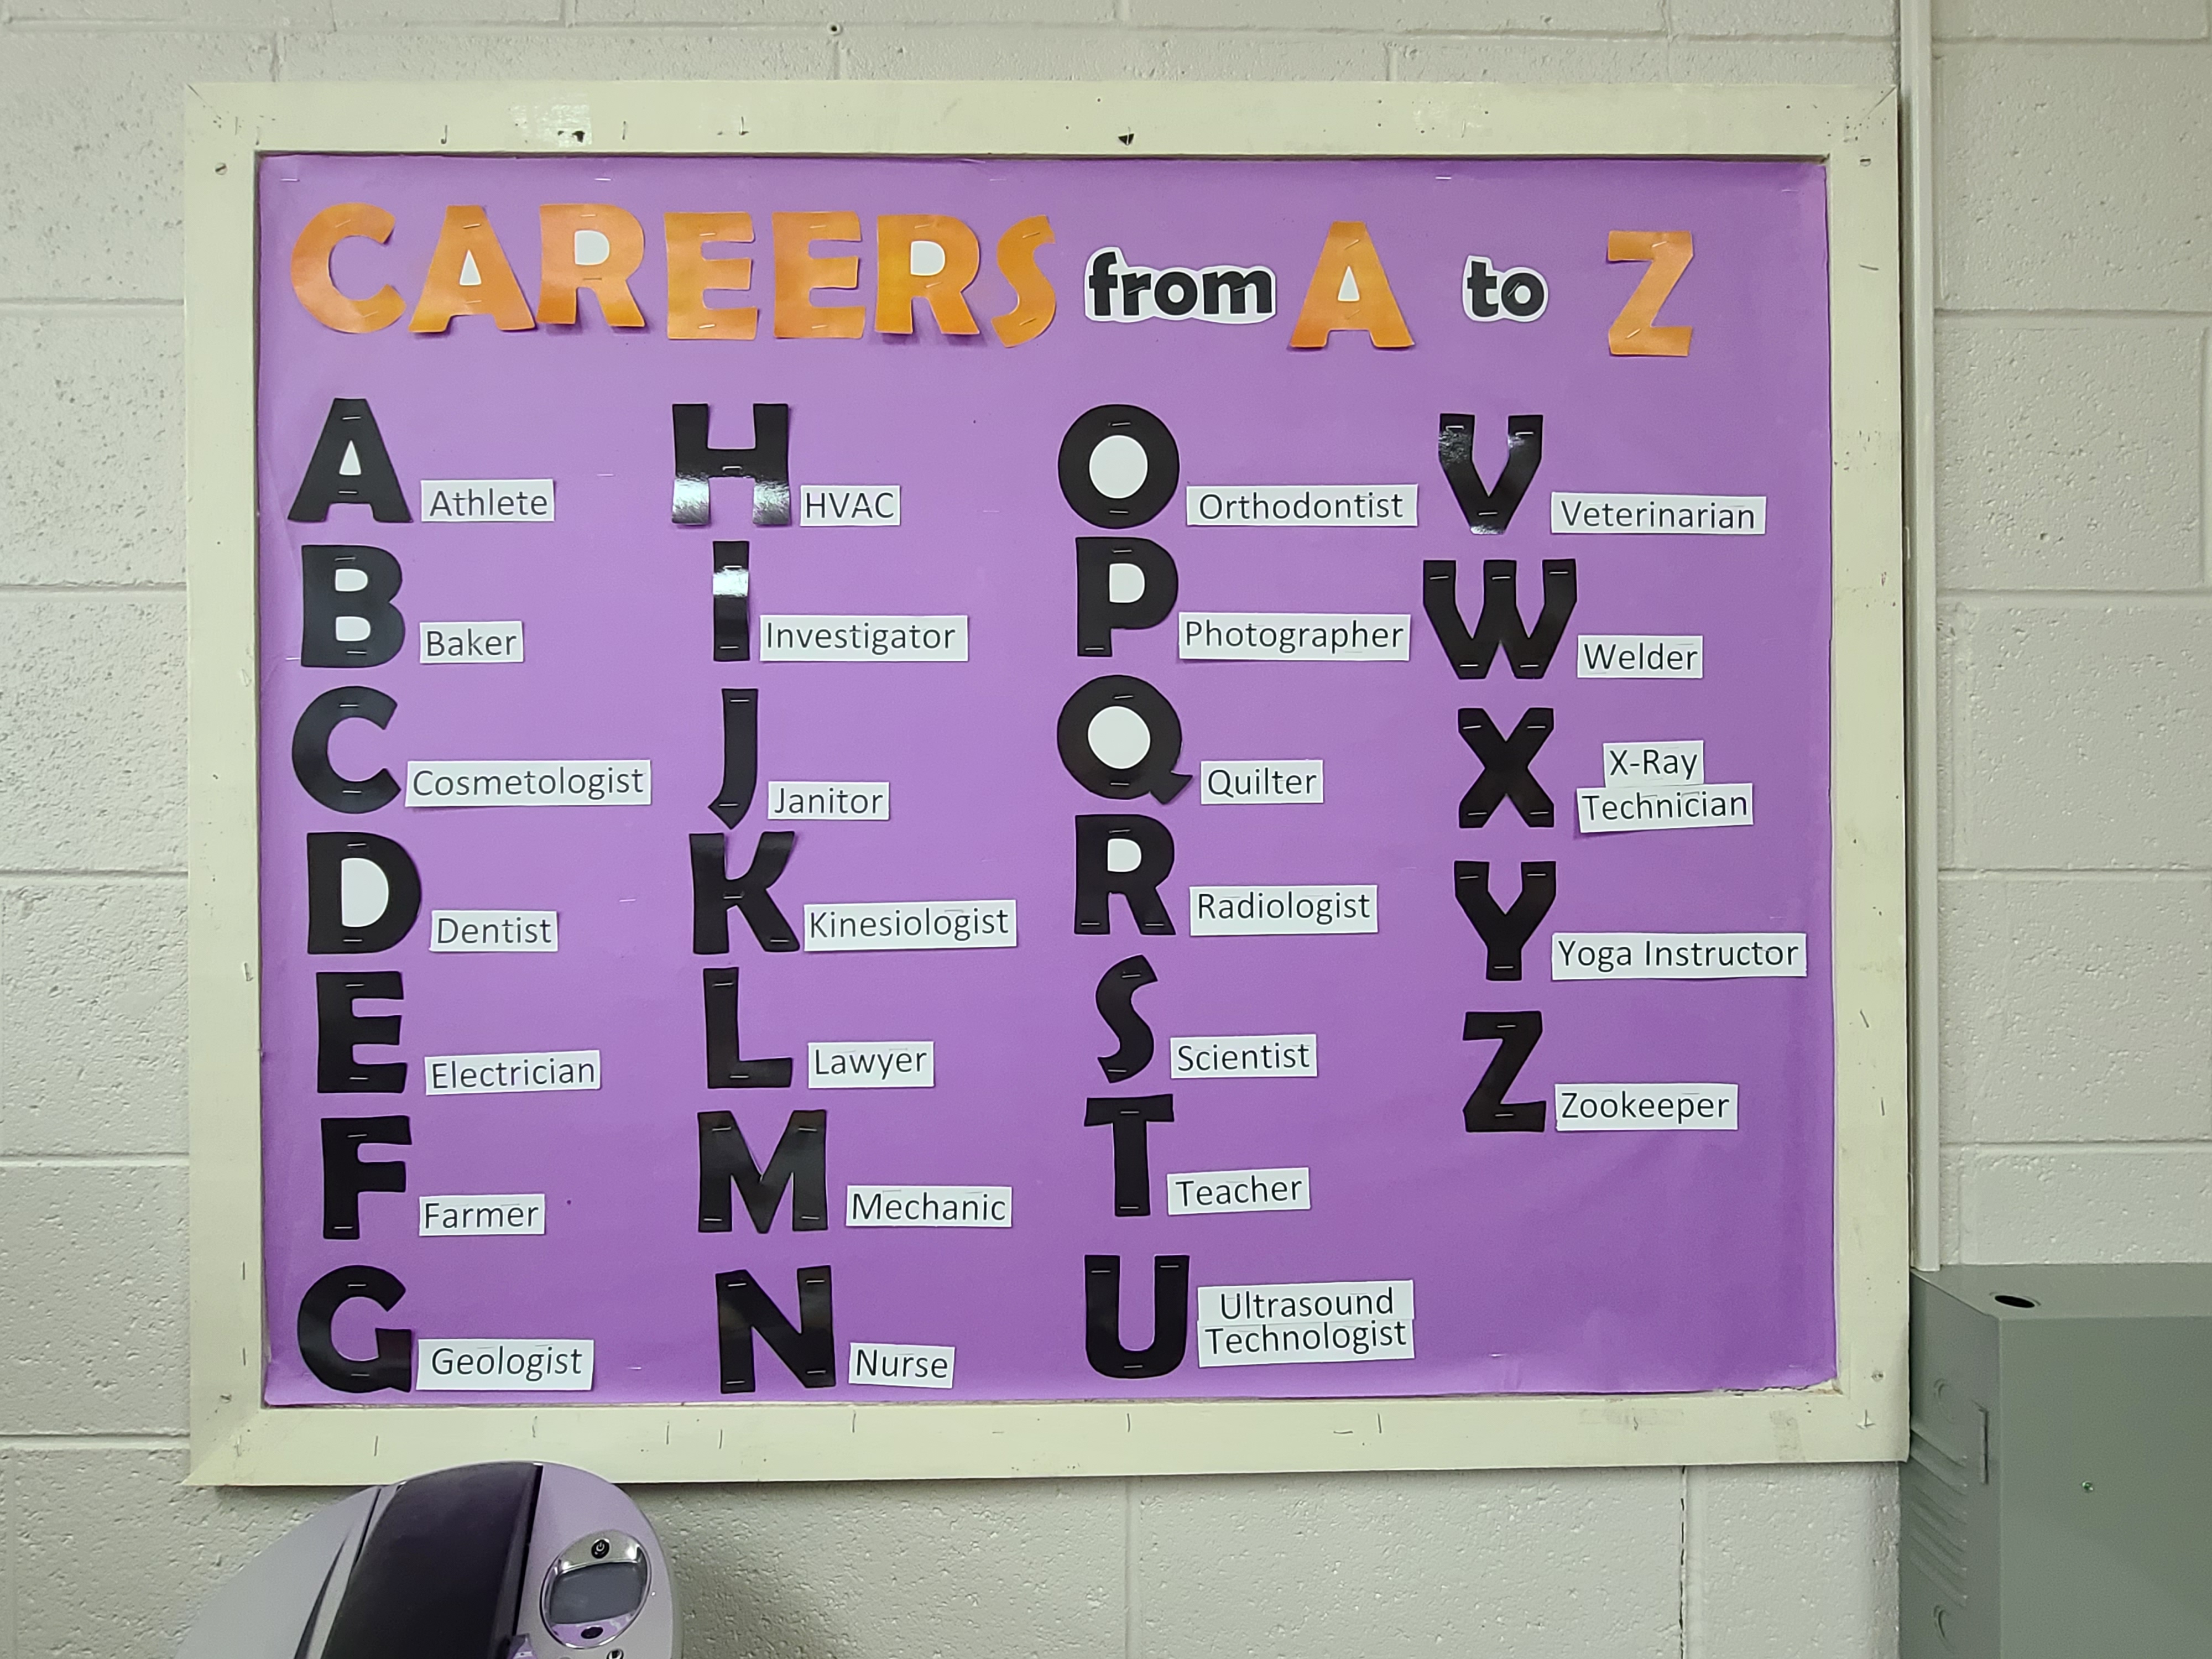 CAREERS from A to Z
A Athlete
B Baker
C Cosmetologist
D Dentist
E Electrician
F Farmer
G Geologist
H HVAC
I Investigator
J Janitor
K Kinesiologist
L Lawyer
M Mechanic
N Nurse
O Orthodontist
P Photographer
Q Quilter
R Radiologist
S Scientist
T Teacher
U Ultrasound
Technologist
V Veterinarian
W Welder
X X-Ray
Technician
Y Yoga Instructor
Z Zookeeper